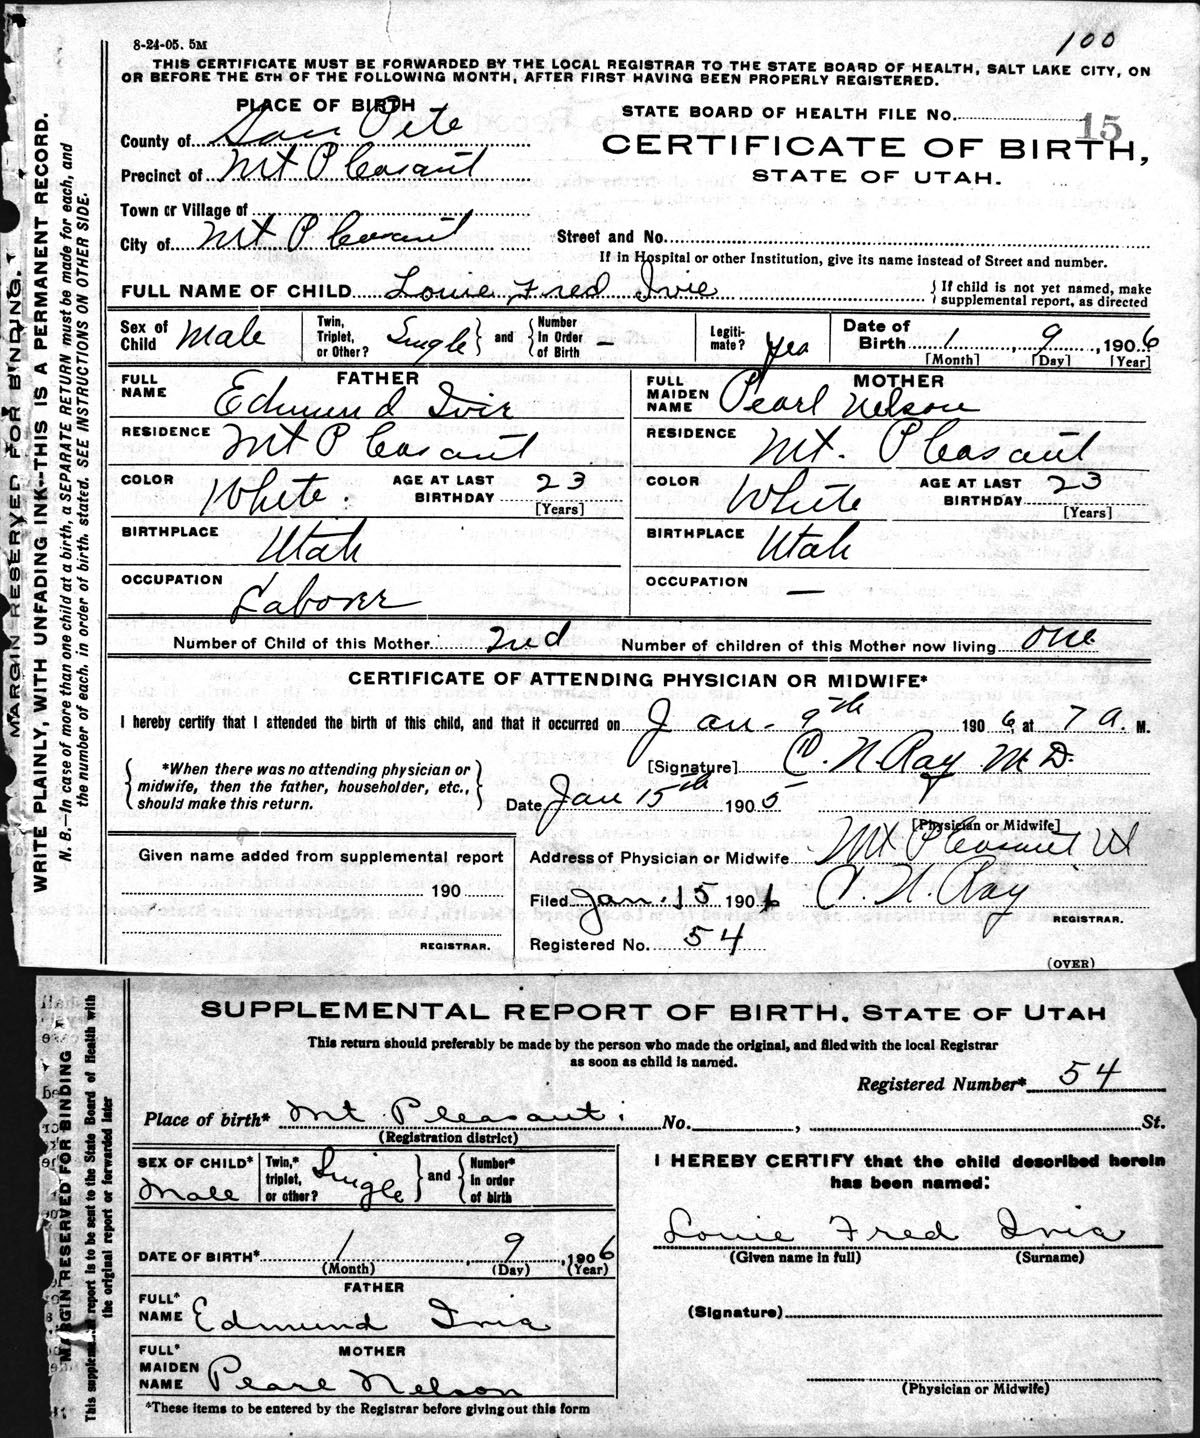 8-24-05. 5M
100
THIS CERTIFICATE MUST BE FORWARDED BY THE LOCAL REGISTRAR TO THE STATE BOARD OF HEALTH, SALT LAKE CITY, ON
OR BEFORE THE 5TH OF THE FOLLOWING MONTH, AFTER FIRST HAVING BEEN PROPERLY REGISTERED.
PLACE OF BIRTH
County of San Pete
Precinct of Mt Pleasant
Town or Village of
City of Mt Pleasant
STATE BOARD OF HEALTH FILE No. 15
CERTIFICATE OF BIRTH,
STATE OF UTAH.
Street and No.
If in Hospital or other Institution, give its name instead of Street and number.
FULL NAME OF CHILD Louie Fred Ivie { If child is not yet named, make
supplemental report, as directed
Sex of Child Male
Twin, Triplet, or Other? Single } and { Number In Order of Birth –
Legiti- mate? Yea
Date of Birth 1, 9, 1906
[Month] [Day] [Year]
FATHER
FULL NAME Edmund Ivie
RESIDENCE Mt Pleasant
COLOR White. AGE AT LAST BIRTHDAY 23
[Years]
BIRTHPLACE Utah
OCCUPATION Laborer
MOTHER
FULL MAIDEN NAME Pearl Nelson
RESIDENCE Mt. Pleasant
COLOR White AGE AT LAST BIRTHDAY 23
[Years]
BIRTHPLACE Utah
OCCUPATION –
Number of Child of this Mother 2nd Number of children of this Mother now living one
CERTIFICATE OF ATTENDING PHYSICIAN OR MIDWIFE*
I hereby certify that I attended the birth of this child, and that it occurred on Jan. 9th 1906, at 7 a. M.
{ *When there was no attending physician or
midwife, then the father, householder, etc.,
should make this return. }
[Signature] C. N. Ray M.D.
Date Jan 15th 1905
[Physician or Midwife]
Given name added from supplemental report
190
REGISTRAR.
Address of Physician or Midwife Mt Pleasant Ut
Filed Jan. 15 1906 C. N. Ray
REGISTRAR.
Registered No. 54
(OVER)
MARGIN RESERVED FOR BINDING.
WRITE PLAINLY, WITH UNFADING INK--THIS IS A PERMANENT RECORD.
N. B.—In case of more than one child at a birth, a SEPARATE RETURN must be made for each, and
the number of each, in order of birth, stated. SEE INSTRUCTIONS ON OTHER SIDE.
SUPPLEMENTAL REPORT OF BIRTH, STATE OF UTAH
This return should preferably be made by the person who made the original, and filed with the local Registrar
as soon as child is named.
Registered Number* 54
Place of birth* Mt Pleasant. No. , St.
(Registration district)
SEX OF CHILD* Male
Twin,* triplet, or other? Single } and { Number* In order of birth
DATE OF BIRTH* 1, 9, 1906
(Month) (Day) (Year)
FATHER
FULL* NAME Edmund Ivie
MOTHER
FULL* MAIDEN NAME Pearl Nelson
*These items to be entered by the Registrar before giving out this form
I HEREBY CERTIFY that the child described herein
has been named:
Louie Fred Ivie
(Given name in full) (Surname)
(Signature)
(Physician or Midwife)
MARGIN RESERVED FOR BINDING
This supplemental report is to be sent to the State Board of Health with
the original report or forwarded later